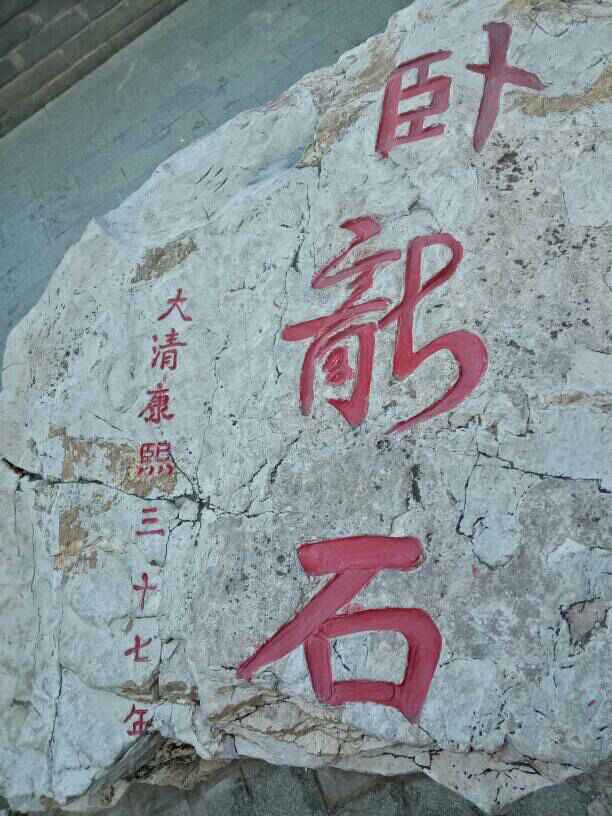 卧龍石
大清康熙三十七年